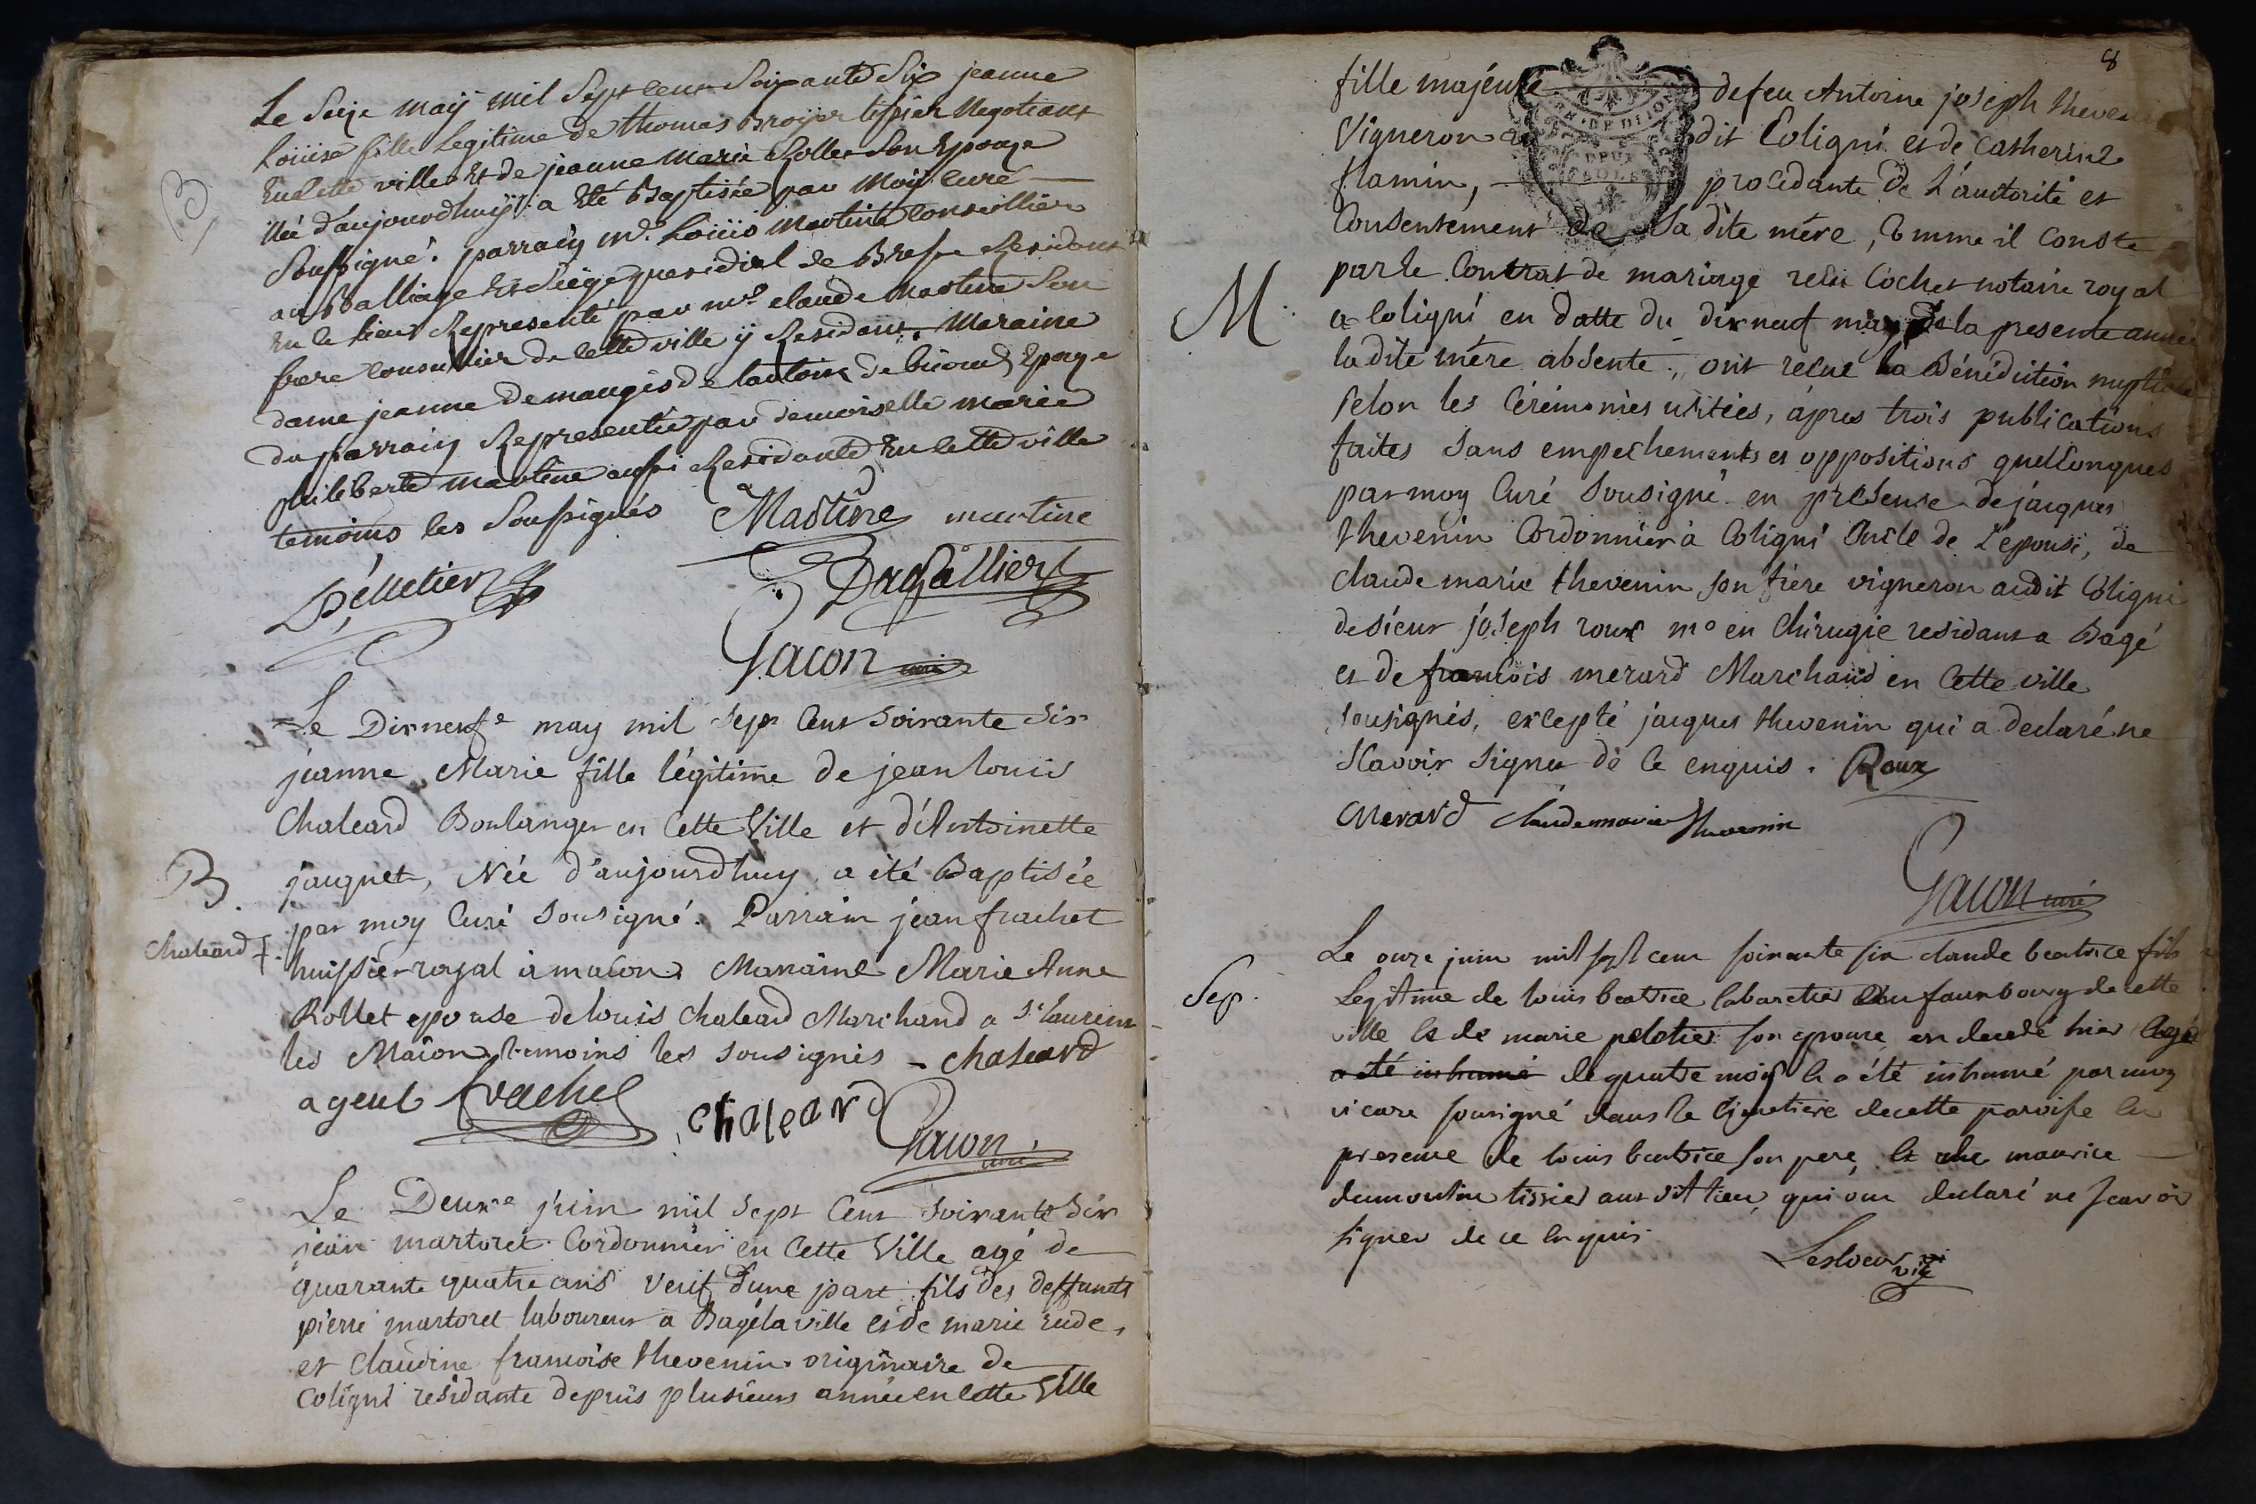 Le Seize may mil Sept cent Soixante Six jeanne
Loüise fille Legitime de thomas Broÿer tepier Negotiant
En cette ville Et de jeanne Marie Rollet Son Epouze
née d'aujourdhuÿ a Eté Baptisée par Moÿ Curé
Soussigné. parrain mr. Loüis Martine Conseillier
au Balliage Et Siége presidial de Bresse Residant
En le lieu Representé par mr. claude Martine Son
frere conseillier de cette ville ÿ Residant. Maraine
dame jeanne Demaugis de Epouze
du parrain Representée par demoiselle marie
philiberte Martine aussi Residante En cette ville
temoins les Soussignés Martine martine
Pelletier Dagallier
Gacon curé
B
Le Dixneufe may mil Sept Cent Soixante Six
jeanne Marie fille légitime de jean louis
Chaleard Boulanger en Cette Ville et d'Antoinette
jacquet, Née d'aujourdhuy a été Baptisée
par moy Curé Sousigné. Parrain jean frachet
huissier royal à macon. Maraine Marie Anne
Rollet epouse de louis Chaleard Marchand a St laurent
les Macon temoins les Sousignés - chaleard
ageul frachet chaleard Gacon curé
B.
Chaleard
Le Deuxe juin mil Sept Cent Soixante Six
jean martoret Cordonnier en Cette Ville agé de
quarante quatre ans veuf d'une part fils des deffuncts
pierre martoret laboureur a Bagé la ville et de marie Eude,
et Claudine francoise thevenin originaire de
Coligni residante depuis plusieurs année en Cette Ville
8
fille majeure de feu Antoine joseph theven
Vigneron dit Coligni et de Catherine
flamin, procédante de L'auctorité et
Consentement de Sa dite mére, Comme il Conste
par le Contrat de mariage recu Cochet notaire royal
a Coligni en datte du dix neuf may de la presente année
la dite mére absente, ont recue la Bénédiction nuptiale
selon les Cérémonies usitées, áprès trois publications
faites Sans empechements et oppositions quelConques
par moy Curé Sousigné en présense de jacques
thevenin Cordonnier à Coligni Oncle de L'épouse, de
claude marie thevenin son frére vigneron audit Coligni
de sieur joseph roux me en Chirugie residant a Bagé
et de francois merard Marchand en Cette ville
sousignés, excepté jacques thevenin qui a declaré ne
Scavoir Signer de Ce enquis. Roux
Merard Claude marie thevenin
Gacon curé
M.
Le onze juin mil sept cent soixante six claude beatrice fils
Legitime de louis beatrice Cabaretier au fauxbourg de cette
ville et de marie peletier son epouse est decedé hier agé
a été inhumé de quatre mois et a été inhumé par moy
vicaire sousigné dans le Cimetiere de cette paroisse en
presence de louis beatrice son pere, et de maurice
dumoulin tissier aux dit lieu, qui ont declaré ne scavoir
signer de ce enquis
Sep.